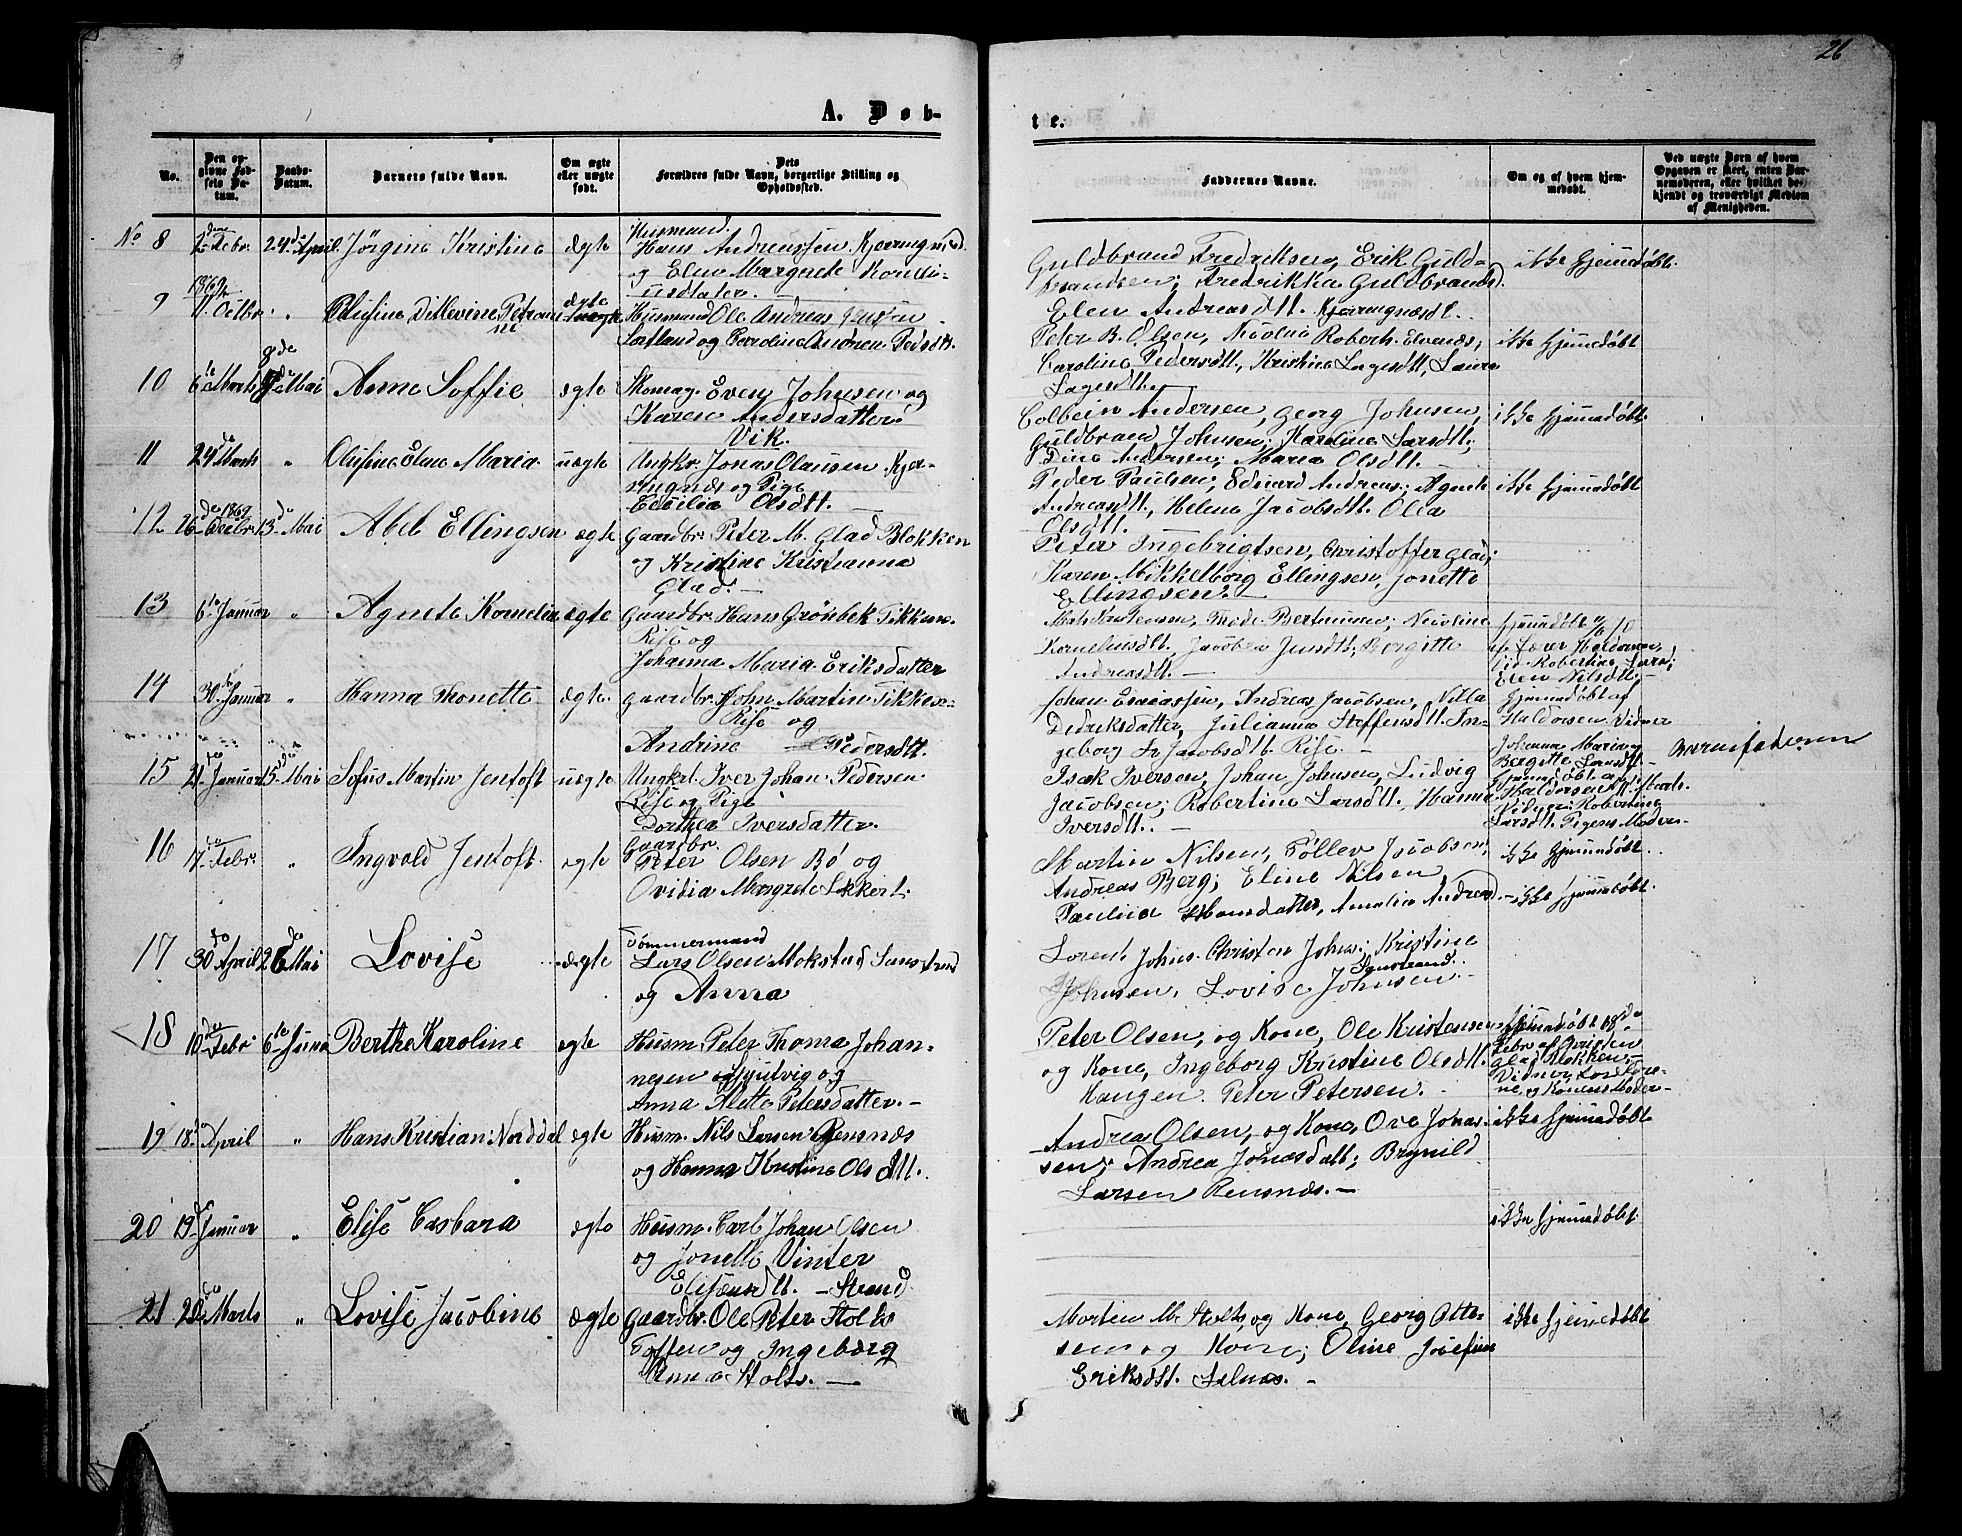 26
A. Døb-
te.
No.
Den opgivne Fødsels Datum.
Daabs-Datum.
Barnets fulde Navn.
Om ægte eller uægte født.
Dets Forældres fulde Navn, borgerlige Stilling og Opholdssted.
Faddernes Navne.
Om og af hvem hjemmedøbt.
Ved uægte Børn af hvem Opgaven er skeet, enten Barnemoderen, eller hvilket bekjendt og troværdigt Medlem af Menigheden.
No 8 2den Febr. 24de April. Jörgine Kristine ægte Husmand.
Hans Andreassen Kjerringnæs.
og Elen Margrete Korneli-
usdatter.
Guldbrand Fredriksen, Erik Guld-
brandsen; Fredrikka Guldbrandsd.
Elen Andreasdt. Kjerringnæsdt.
ikke hjemmedøbt.
9 1869 11 Octbr. " Olufine Petrone ægte
Husmand Ole Andreas
Sortland og Caroline Pedsdt.
Peter B. Olsen, Nicolai Roberts. Elvenæs;
Caroline Pedersdtt., Kristine Lagesdtt, Laura
Lagesdtt.
ikke hjemmedøbt
10 6te Marts 8de Mai Anne Soffie ægte
Skomag. Even Johnsen og
Karen Andersdatter
Vik.
Colbein Andersen, Georg Johnsen,
Guldbrand Johnsen; Karoline Larsdtt;
Dina Andersen; Maria Olsdtt.
ikke hjemmedøbt
11 24de Marts " Olufine Elene Maria uægte
Ungkr. Jonas Olausen Kjer-
ringnæs og Pige
Cecilia Olsdtt.
Peder Paulsen, Edvard Andreas; Agnete
Andreasdtt., Helene Jacobsdtt. Olea
Olsdtt.
ikke hjemmedøbt
12 26de Decbr 1869 13de Mai Abel Ellingsen ægte
Gaardbr. Peter M. Glad Blokken
og Kristine Kristianna
Glad.
Peter Ingebrigtsen, Christoffer Glad;
Karen Mikkelborg Ellingsen, Jonette
Ellingsen.
13 6te Januar " Agnete Kornelia ægte
Gaardbr. Hans Grönbek Tikkun.
Rise og
Johanna Maria Eriksdatter
Nicoline
Korneliusdtt, Jacobea Jensdtt; Bergitte
Andreasdtt.
hjemmedøbt
Robertine Lars;
Elen Nilsdtt.
14 30te Januar " Hanna Thonette ægte
Gaardbr. John Martin Tikken-
Rise og
Andrine Pedersdtt.
Johan Esaiassen, Andreas Jacobsen, Nilla
Dedriksdatter, Julianna Steffensdtt. In-
geborg Jacobsdtt. Rise.
Hjemmedøbt af
Haldorsen Vidner
Johanna Maria og
Bergitte Larsdtt.
15 21de Januar 15de Mai Sofus Martin Jentoft uægte
Ungkrl. Iver Johan Pedersen
Rise og Pige
Dorthea Iversdatter.
Isak Iversen, Johan Johnsen, Ludvig
Jacobsen; Robertine Larsdtt., Hanna
Iversdtt.
Hjemmedøbt af
Haldorsen
Vidner: Robertine
Larsdtt. Pigens Moder
Barnefaderen
16 17de Febr. " Ingvold Jentoft ægte
Gaardbr.
Peter Olsen Bö og
Ovidia Margrete Lekkert.
Martin Nilsen, Töllev Jacobsen,
Andreas Berg; Eline Nilsen
Paulina Hansdatter, Amalia Andreasd.
ikke hjemmedøbt.
ikke hjemmedøbt.
17 30de April 26de Mai Lovise ægte
Tömmermand
Lars Olsen Mokstad Sandstrand
og Anna
Lorents Johns. Christen Johns; Kristine
Johnsen, Lovise Johnsen
Sandstrand.
18 10de Febr 6te Juni Berthe Karoline ægte
Husm. Peter Thoma Johan-
nesen Spjutvig og
Anna Aletta Petersdatter.
Peter Olsen, og Kone, Ole Kristensen
og Kone, Ingeborg Kristine Olsdtt.
Haugen. Peter Petersen.
Hjemmedøbt 18de
Febr af Cristen
Glad Blokken.
og Konens Moder
19 18de April " Hans Kristian Norddal ægte
Husm. Nils Larsen Rensnæs
og Hanna Kristine Olsdtt.
Andrea Olsen, og Kone, Ove Jonas-
sen; Andrea Jonasdatt; Brynild
Larsen Rensnæs.
ikke hjemmedøbt
20 19de Januar " Elise Casbara ægte
Husm. Carl Johan Olsen
og Jonette Vinter
Eliseusdtt. Strand
ikke hjemmedøbt
21 20de Marts " Lovise Jacobine ægte
Gaardbr. Ole Peter Stolts
Toften og Ingeborg
Anna Stolts.
Morten M. Stolts, og Kone, Georg Otte-
sen og Kone; Oline Josefine
Eriksdtt. Selnæs.
ikke hjemmedøbt